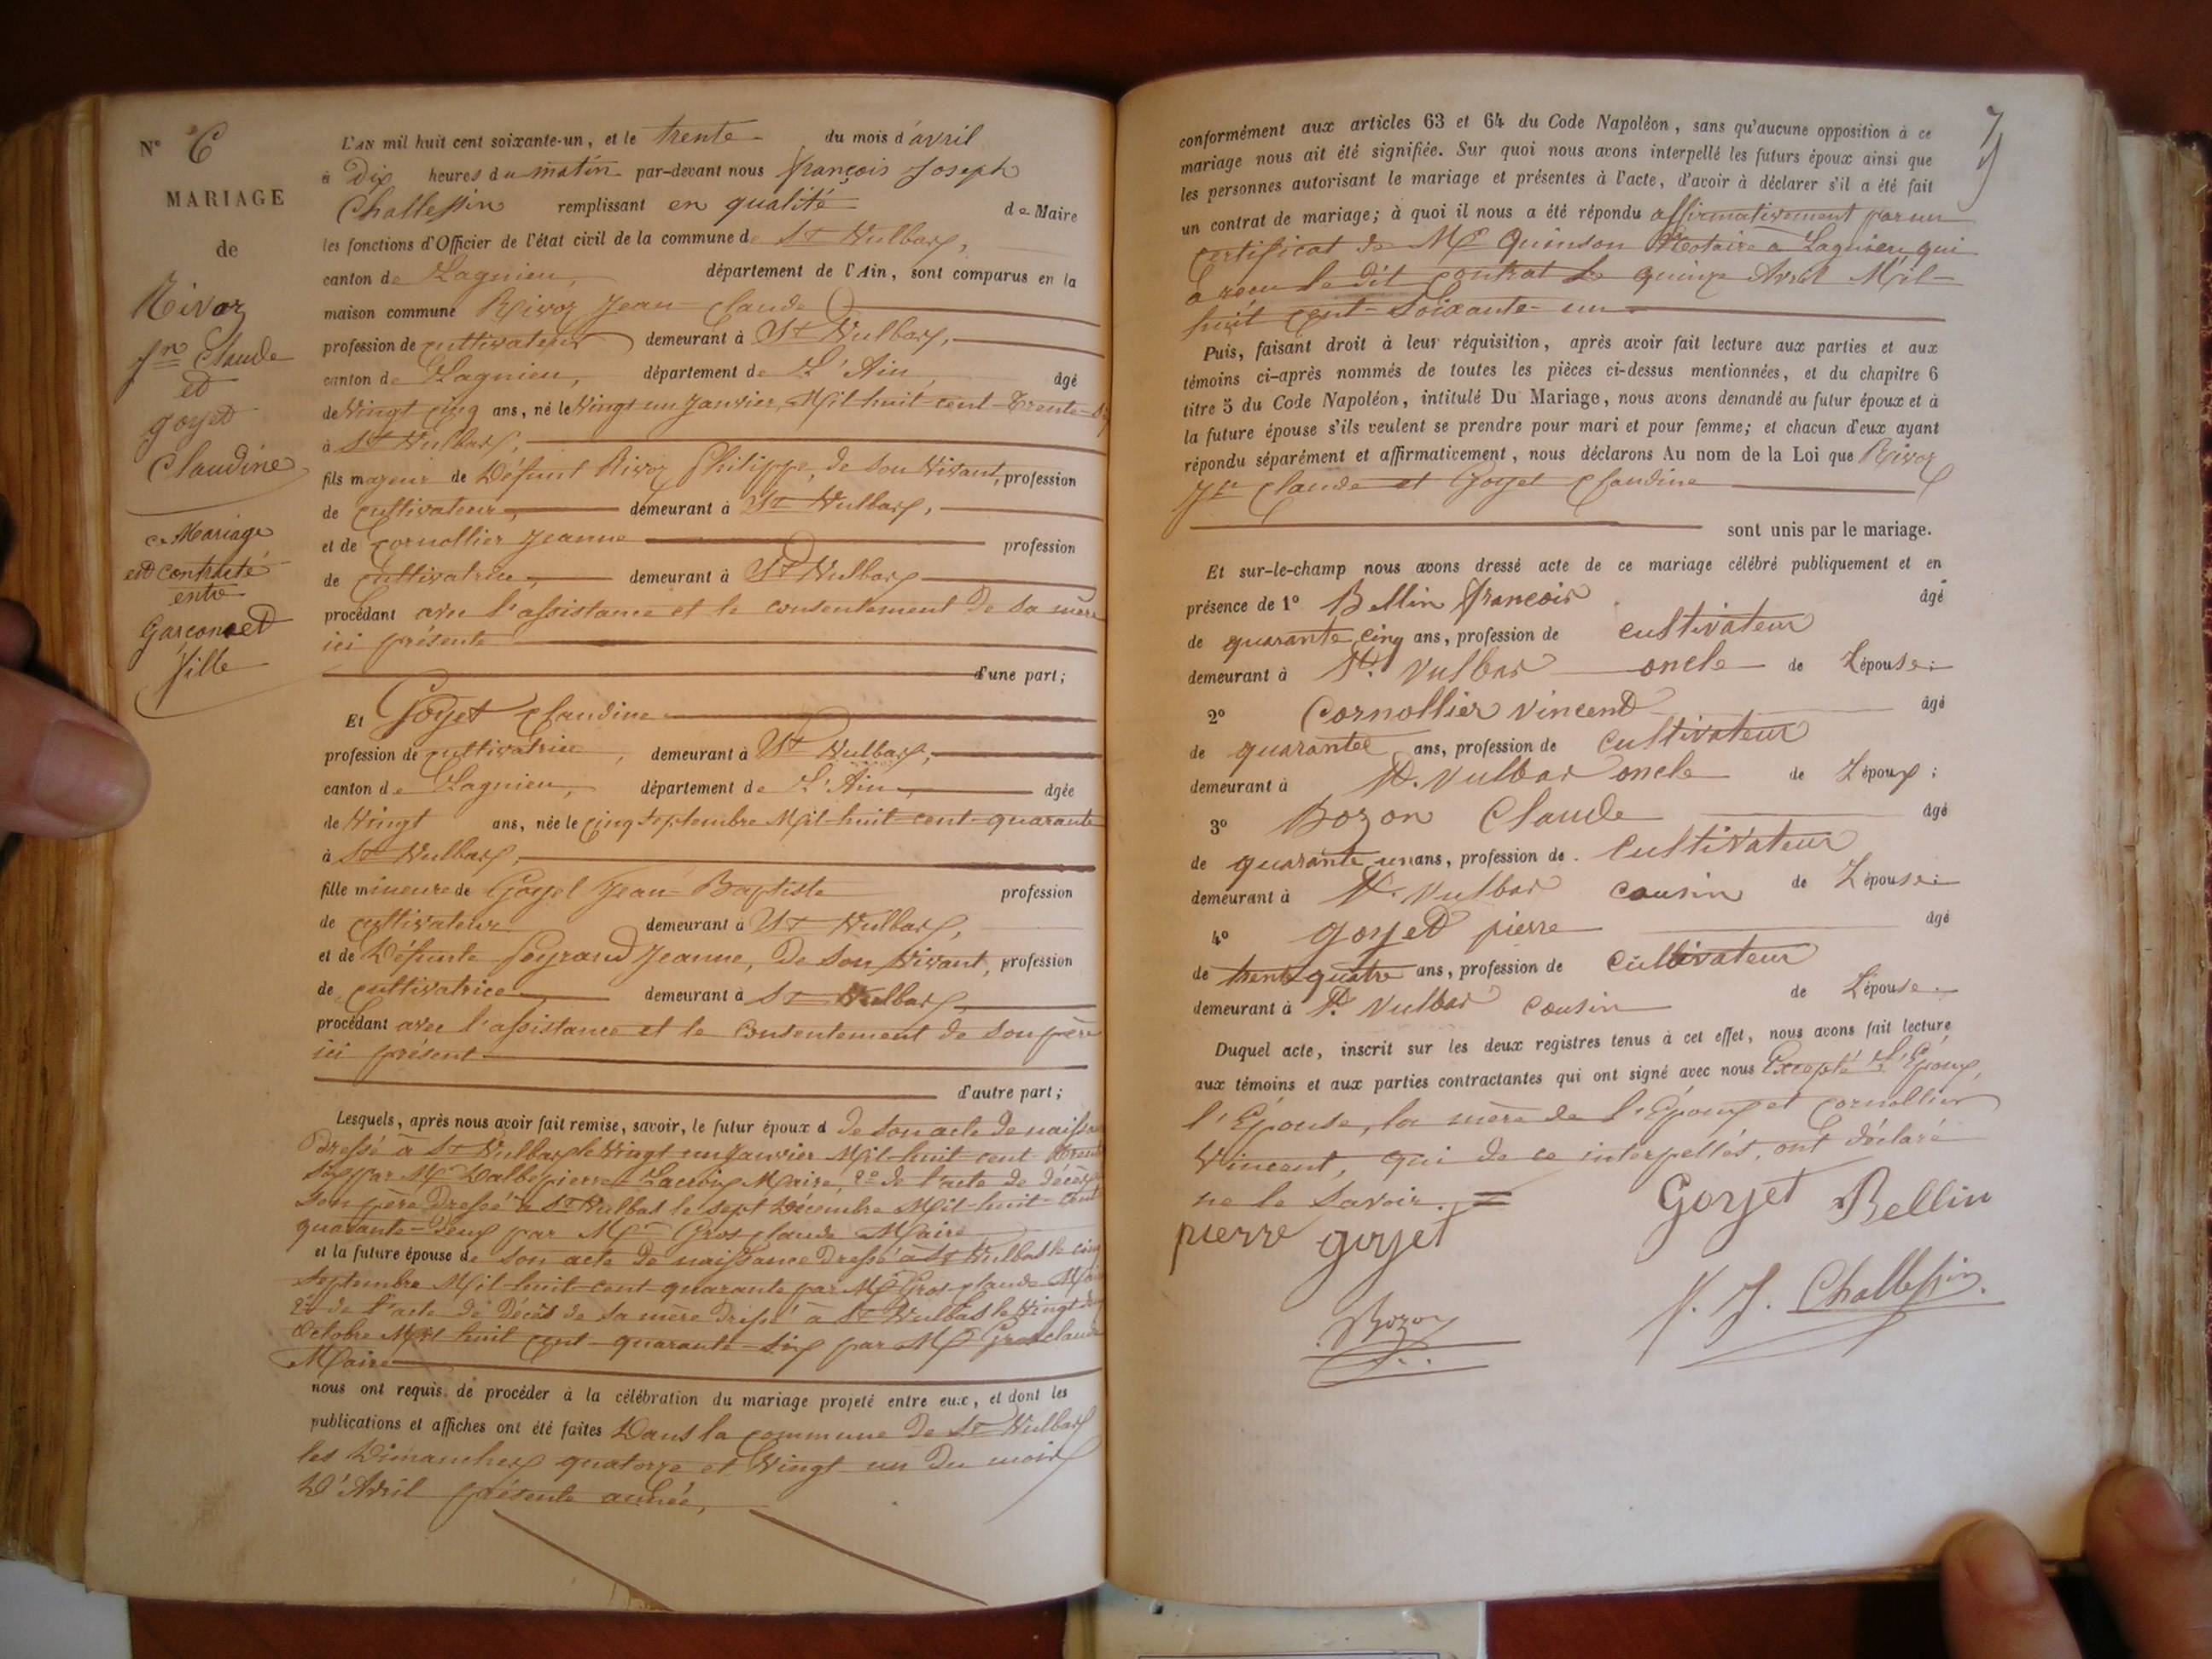 N° 6
MARIAGE
de
Rivoz
Jn Claude
et
goyet
Claudine
ce Mariage
est contracté
entre
Garçon et
fille
L'AN mil huit cent soixante-un, et le trente du mois d'avril
à Dix heures du matin par-devant nous françois Joseph
Challessin remplissant en qualité de Maire
les fonctions d'Officier de l'état civil de la commune de St Vulbas,
canton de Lagnieu, département de l'Ain, sont comparus en la
maison commune Rivoz Jean Claude
profession de cultivateur demeurant à St Vulbas,
canton de Lagnieu, département de L'Ain, âgé
de Vingt cinq ans, né le Vingt un Janvier, Mil huit cent Trente-six
à St Vulbas,
fils majeur de Défunt Rivoz Philippe, de son Vivant, profession
de cultivateur, demeurant à St Vulbas,
et de Cornollier Jeanne profession
de cultivatrice, demeurant à St Vulbas
procédant avec l'assistance et le consentement de sa mère
ici présente
d'une part;
Et Goyet Claudine
profession de cultivatrice, demeurant à St Vulbas,
canton de Lagnieu, département de L'Ain, âgée
de Vingt ans, née le cinq Septembre Mil huit cent quarante
à St Vulbas,
fille mineure de Goyet Jean Baptiste profession
de cultivateur demeurant à St Vulbas,
et de Défunte Jeanne, de son Vivant, profession
de cultivatrice, demeurant à St Vulbas,
procédant avec l'assistance et le consentement de son père
ici présent
d'autre part;
Lesquels, après nous avoir fait remise, savoir, le futur époux d de son acte de naissa
Dressé à St Vulbas le Vingt un Janvier Mil huit cent trente
six par Mr Dalbepierre Lacroix Maire, 2° de l'acte de décès de
son père Dressé à St Vulbas le sept Décembre Mil huit cent
quarante-deux par Mr Gros claude Maire
et la future épouse de son acte de naissance Dressé à St Vulbas le cinq
Septembre Mil huit cent quarante par Mr Gros claude Maire
2° de l'acte de Décès de sa mère Dressé à St Vulbas le Vingt
Octobre Mil huit cent quarante-six par Mr Gros claude
Maire
nous ont requis de procéder à la célébration du mariage projeté entre eux, et dont les
publications et affiches ont été faites Dans la commune de St Vulbas
les Dimanches quatorze et Vingt un Du mois
D'Avril présente année,
7
conformément aux articles 63 et 64 du Code Napoléon, sans qu'aucune opposition à ce
mariage nous ait été signifiée. Sur quoi nous avons interpellé les futurs époux ainsi que
les personnes autorisant le mariage et présentes à l'acte, d'avoir à déclarer s'il a été fait
un contrat de mariage; à quoi il nous a été répondu affirmativement par un
certificat de Me Quinson Notaire à Lagnieu, qui
a reçu le dit contrat le quinze Avril Mil
huit cent Soixante-un
Puis, faisant droit à leur réquisition, après avoir fait lecture aux parties et aux
témoins ci-après nommés de toutes les pièces ci-dessus mentionnées, et du chapitre 6
titre 5 du Code Napoléon, intitulé Du Mariage, nous avons demandé au futur époux et à
la future épouse s'ils veulent se prendre pour mari et pour femme; et chacun d'eux ayant
répondu séparément et affirmativement, nous déclarons Au nom de la Loi que Rivoz
Jn Claude et Goyet Claudine
sont unis par le mariage.
Et sur-le-champ nous avons dressé acte de ce mariage célébré publiquement et en
présence de 1° Bellin françois âgé
de quarante cinq ans, profession de cultivateur
demeurant à St. Vulbas oncle de Lépouse;
2° Cornollier vincend âgé
de quarantee ans, profession de cultivateur
demeurant à St. Vulbas oncle de Lépoux;
3° Bozon Claude âgé
de quarante un ans, profession de cultivateur
demeurant à St. Vulbas cousin de Lépouse;
4° goyet pierre âgé
de trente quatre ans, profession de cultivateur
demeurant à St. Vulbas cousin de Lépouse.
Duquel acte, inscrit sur les deux registres tenus à cet effet, nous avons fait lecture
aux témoins et aux parties contractantes qui ont signé avec nous Excepté L'Époux,
l'Épouse, la mère de l'Époux et Cornollier
Vincent, qui de ce interpellés, ont déclaré
ne le savoir. =
Goyet Bellin
pierre goyet
Bozon
f. J. Challessin.